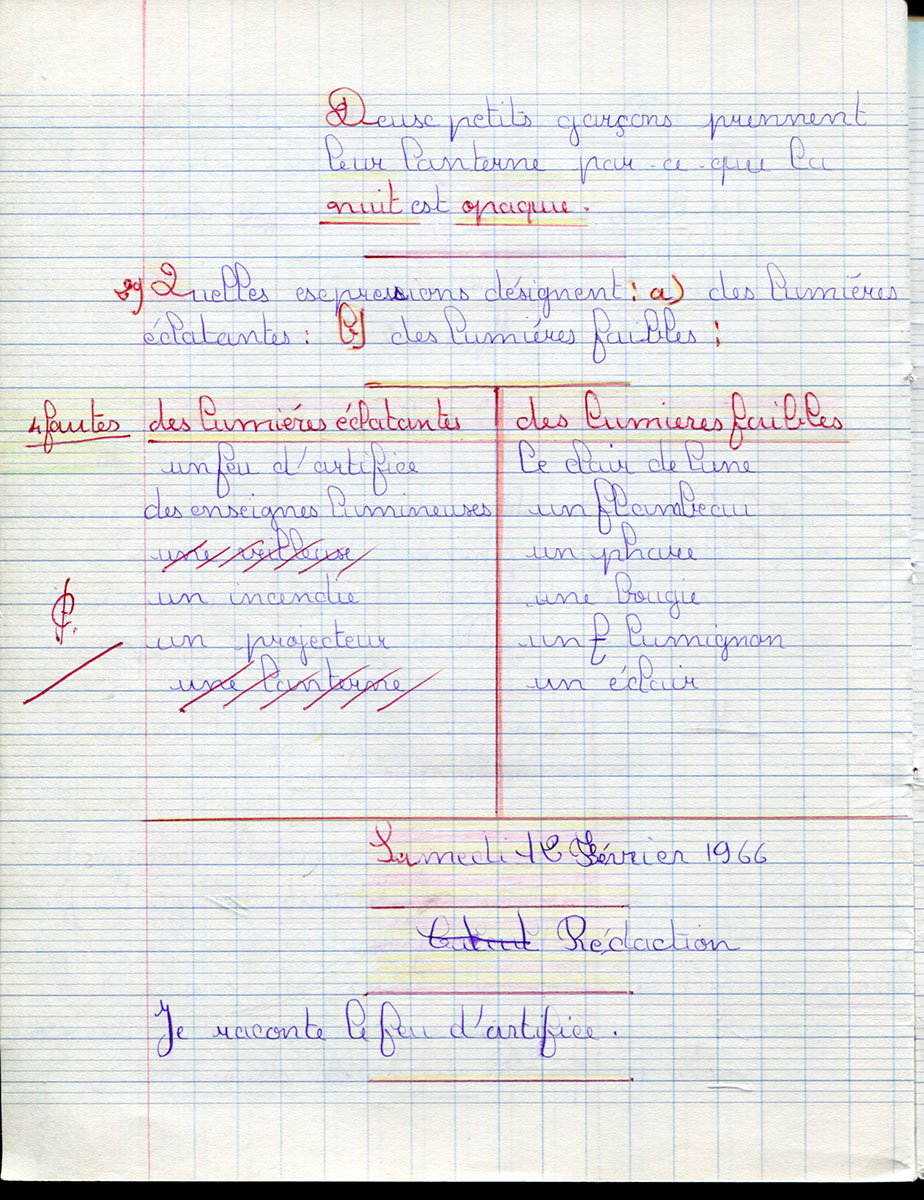 Deux petits garçons prennent
leur lanterne par-ce-que la
nuit est opaque.
Quelles expressions désignent : a) des lumiéres
éclatantes : b) des lumiéres faibles ;
4 fautes des lumiéres éclatantes des lumieres faibles
un feu d'artifice le clair de lune
des enseignes lumineuses un flambeau
une veilleuse un phare
un incendie une bougie
un projecteur un lumignon
une lanterne un éclair
Samedi Février 1966
Rédaction
Je raconte le feu d'artifice.